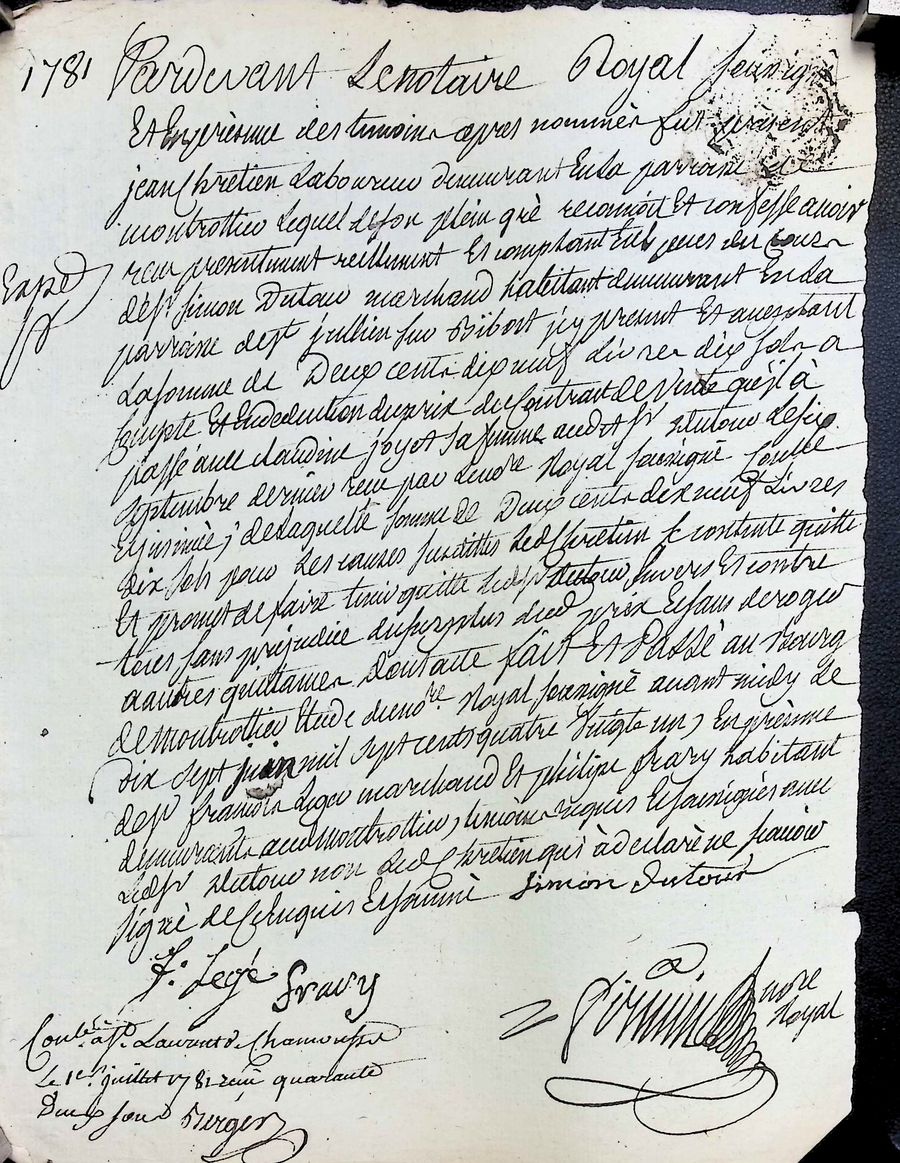 1781 Pardevant Le notaire Royal soussigné
Et En présence des temoins apres nommés fut présent
jean Chrétien Laboureur demeurant En la parroisse de
montrottier Lequel de son plein gré reconnoit Et confesse avoir
reçu presentement réellement Et comptant En Espèces du Cours
de sr Simon Dutour marchand habitant demeurant En la
Exped
parroisse de st jullien sur Bibost jcy present Et acceptant
La somme de Deux cents dix neuf Livres dix sols a
Compte Et En deduction du prix du Contract de Vente qu'il à
passé avec claudine joyet sa femme aud st sr Dutour Le six
septembre dernier reçu par Le nore Royal soussigné Controllé
Et jnsinué; de Laquelle somme de Deux cents dix neuf Livres
Dix sols pour Les causes susdittes Led Chretien se contente quitte
Et promet de faire tenir quitte Led sr Dutour Envers Et contre
tous sans prejudice du surplus dud prix Et sans deroger
a autres quittances Dont acte fait Et Passé au Bourg
de montrottier Etude du nore. Royal soussigné avant midy Le
Dix sept juin mil sept cents quatre Vingts un, En présence
de sr françois Leger marchand Et philipe fravy habitant
demeurants aud Montrottier, temoins requis Et soussignés avec
Led sr Dutour non Led Chretien qui à déclaré ne scavoir
signé de ce Enquis Et sommé Simon Dutour
f. Legé fravy
nore
Royal
Conlé. a St. Laurent de Chamousset
Le 1er. juillet 1781 reçu quarante
Deux sous Berger